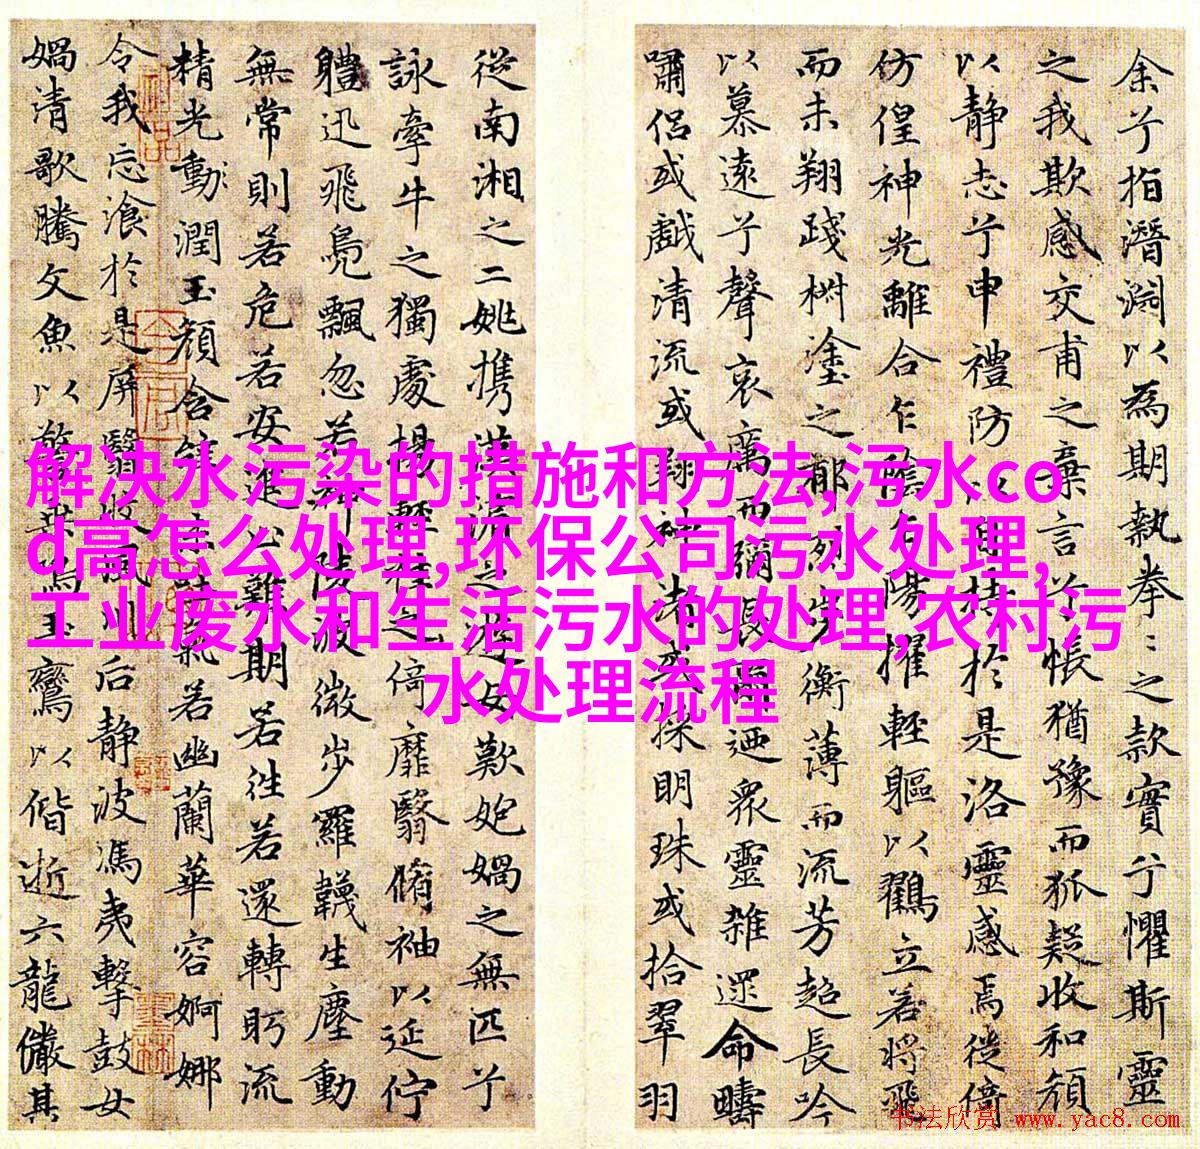 余兮指潛淵以為期執拳〻之款實兮懼斯靈
之我欺感交甫之棄言兮悵猶豫而狐疑收和顔
以静志兮申禮防以自持於是洛靈感焉徙倚
仿偟神光離合乍陰乍陽擢輕軀以鸖立若將飛
而未翔踐椒塗之郁烈步衡薄而流芳超長吟
以慕遠兮聲哀厲而彌長爾迺眾靈雜遝命疇
嘯侶或戲清流或翔神渚或採明珠或拾翠羽
從南湘之二姚攜漢濱之游女歎妑媧之無匹兮
詠牽牛之獨處揚輕袿之倚靡翳脩袖以延佇
軆迅飛鳧飄忽若神陵波微步羅韈生塵動
無常則若危若安進止難期若往若還轉眄流
精光動潤玉顏含辭未吐氣若幽蘭華容婀娜
令我忘飡於是屏翳收風川后静波馮夷擊鼓女
媧清歌騰文魚以警乘鳴玉鸞以偕逝六龍儼其
解决水污染的措施和方法,污水co
d高怎么处理,环保公司污水处理,
工业废水和生活污水的处理,农村污
水处理流程
书法欣赏 www.yac8.com